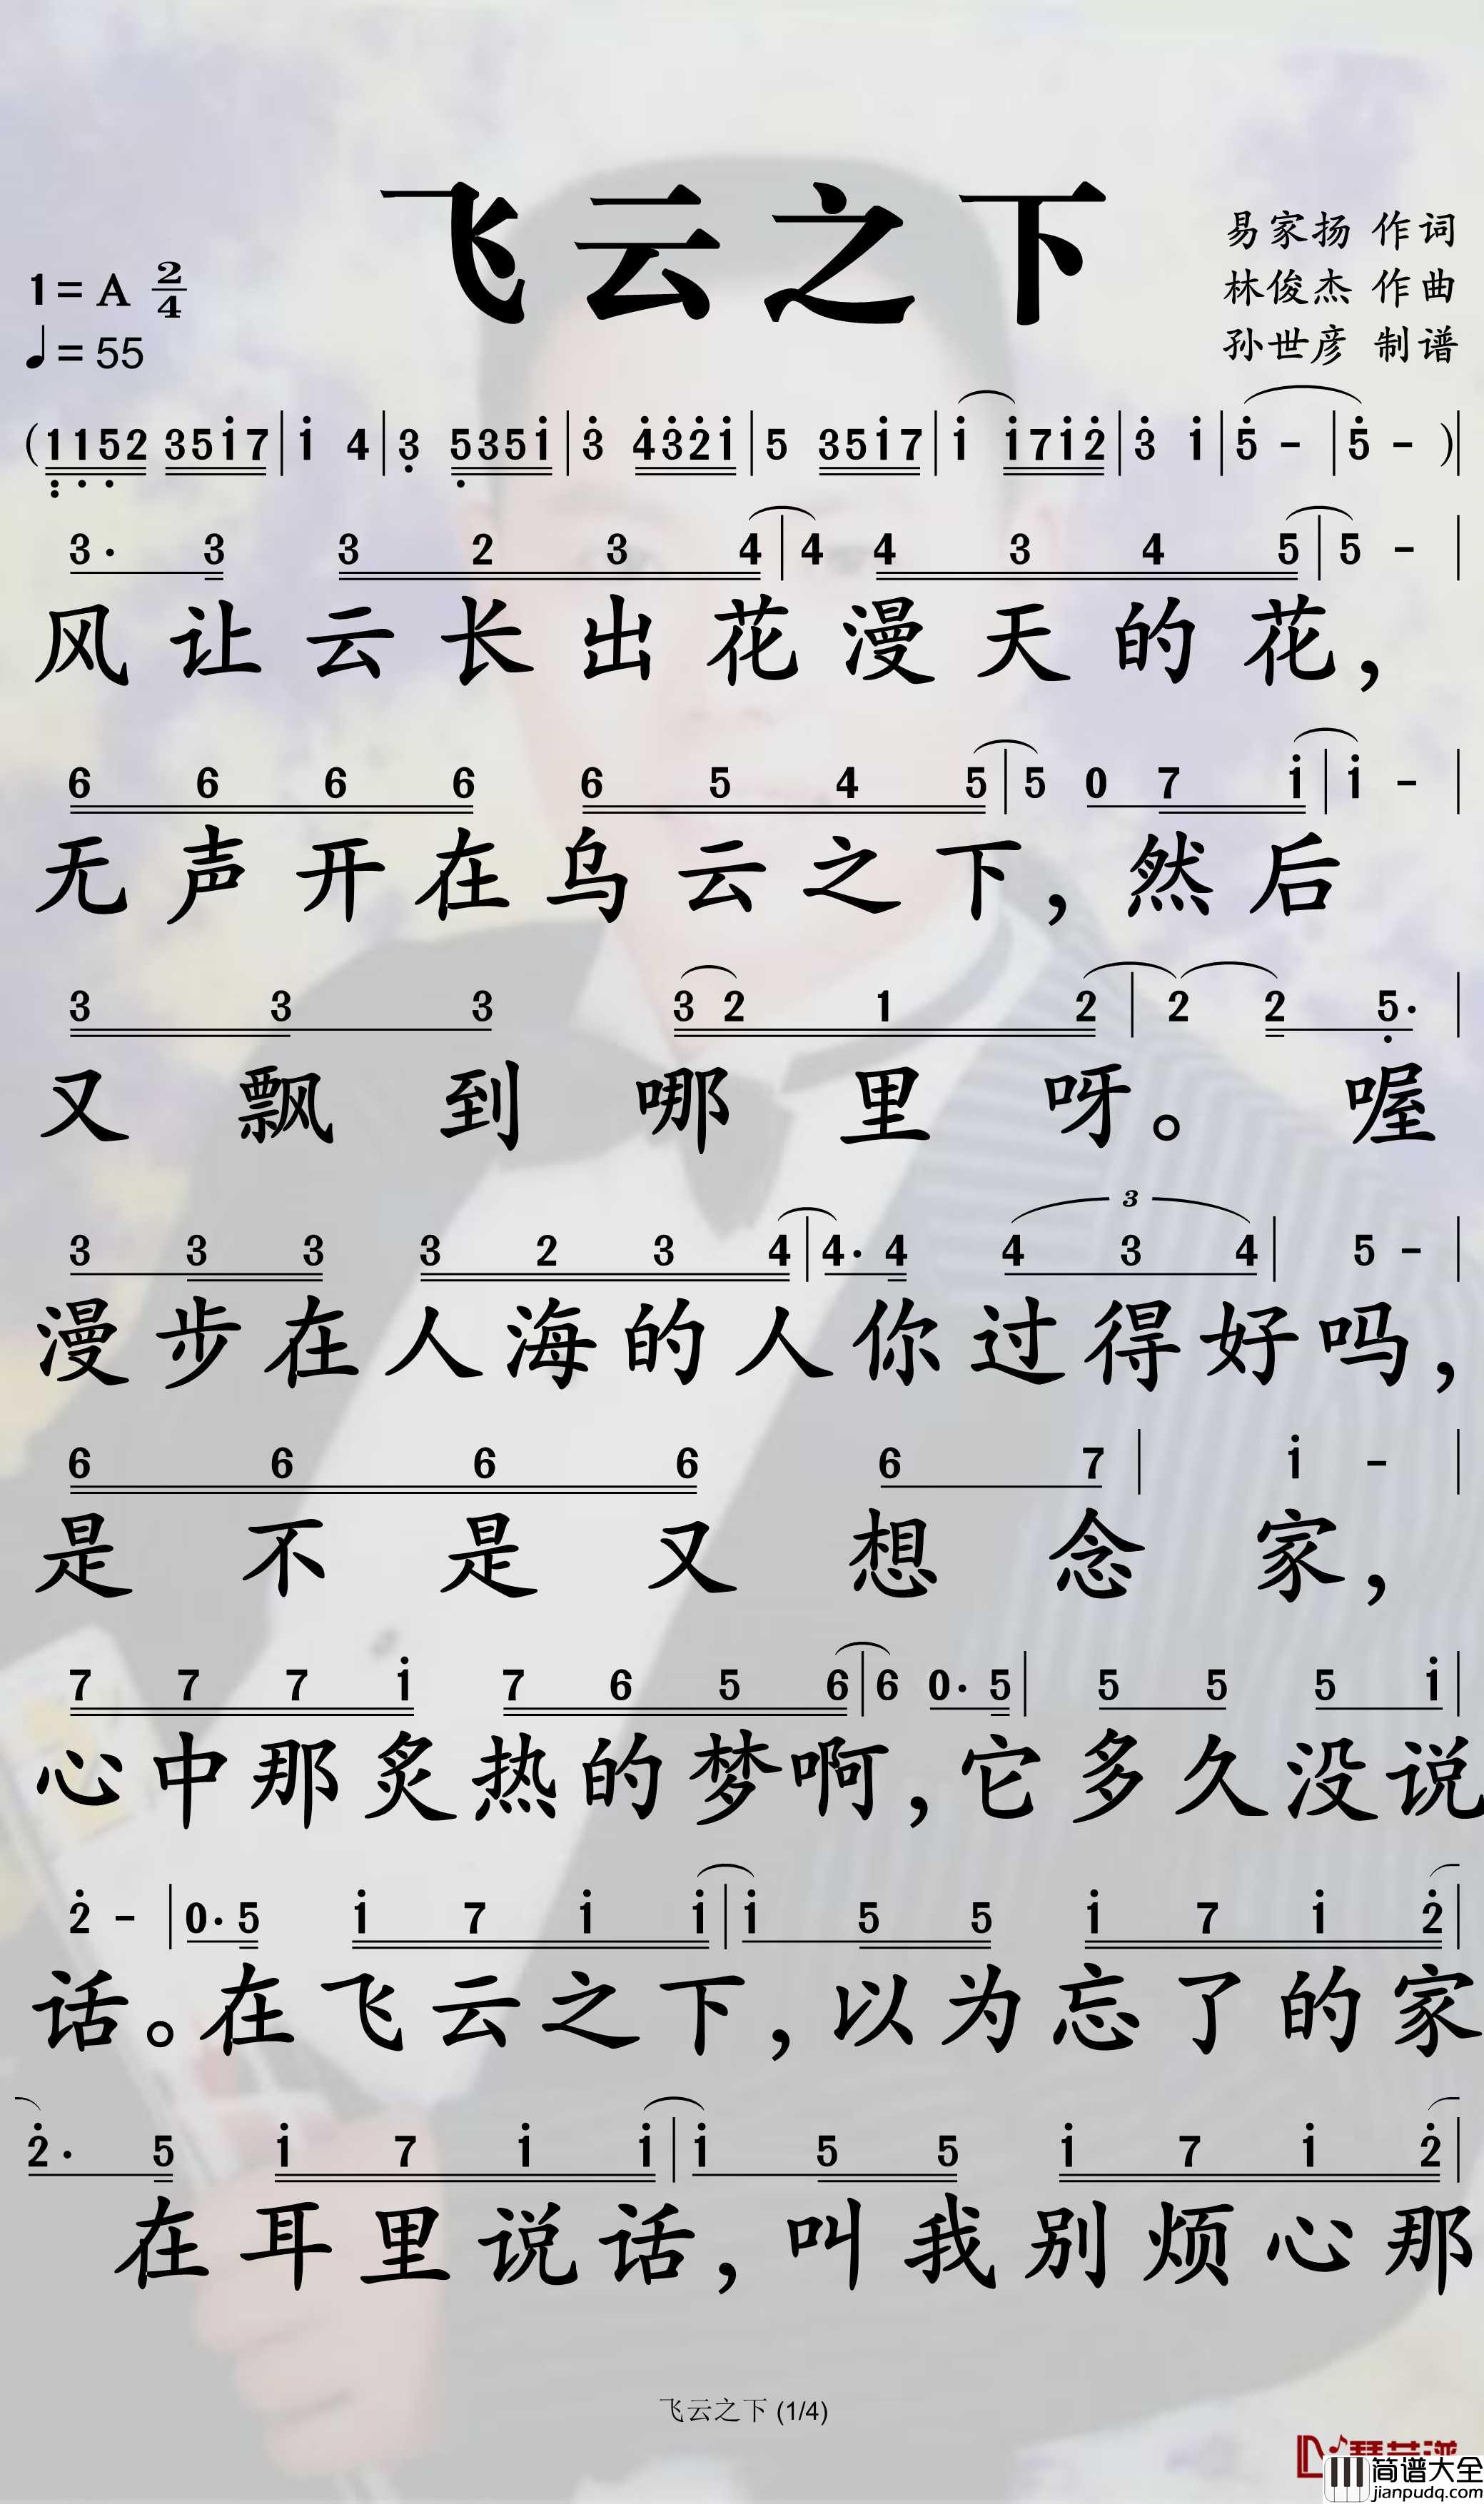 飞云之下
易家扬 作词
1=A 2/4
林俊杰 作曲
♩=55
孙世彦 制谱
(1̤̣1̣5̣2 35i7|i 4|3̣ 5̣35i|3̇ 4̇3̇2̇i|5 35i7|i i7i2̇|3̇ i|5̇ -|5̇ -)|
3· 3 3 2 3 4|4 4 3 4 5|5 -|
风让云长出花漫天的花，
6 6 6 6 6 5 4 5|5 0 7 i|i -|
无声开在乌云之下，然后
3 3 3 3 2 1 2|2 2 5̣·|
又飘到哪里呀。喔
3
3 3 3 3 2 3 4|4· 4 4 3 4|5 -|
漫步在人海的人你过得好吗，
6 6 6 6 6 7|i -|
是不是又想念家，
7 7 7 i 7 6 5 6|6 0· 5|5 5 5 i|
心中那炙热的梦啊，它多久没说
2̇ -|0· 5 i 7 i i|i 5 5 i 7 i 2̇|
话。在飞云之下，以为忘了的家
2̇· 5 i 7 i i|i 5 5 i 7 i 2̇|
在耳里说话，叫我别烦心那
飞云之下 (1/4)
简谱大全
jianpudq.com